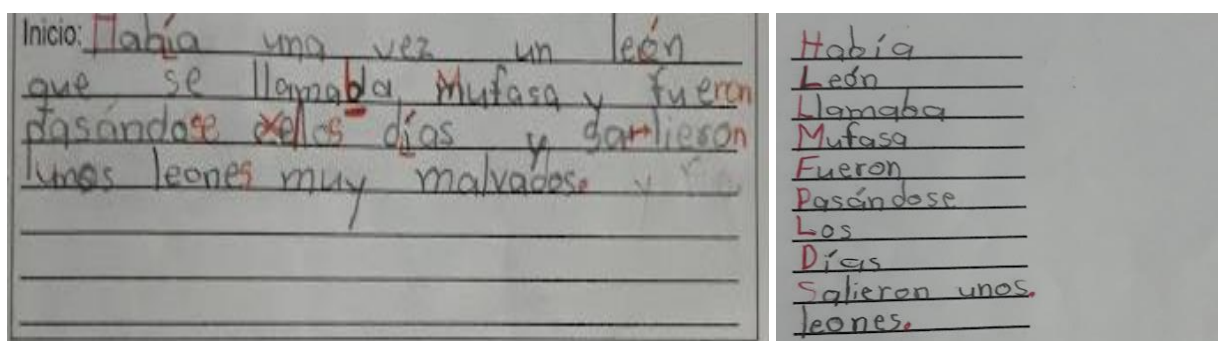 Inicio: Había una vez un león
que se llamaba Mufasa y fueron
pasándose los días y salieron
unos leones muy malvados. y
Había
León
Llamaba
Mufasa
Fueron
Pasándose
Los
Días
Salieron unos.
leones.